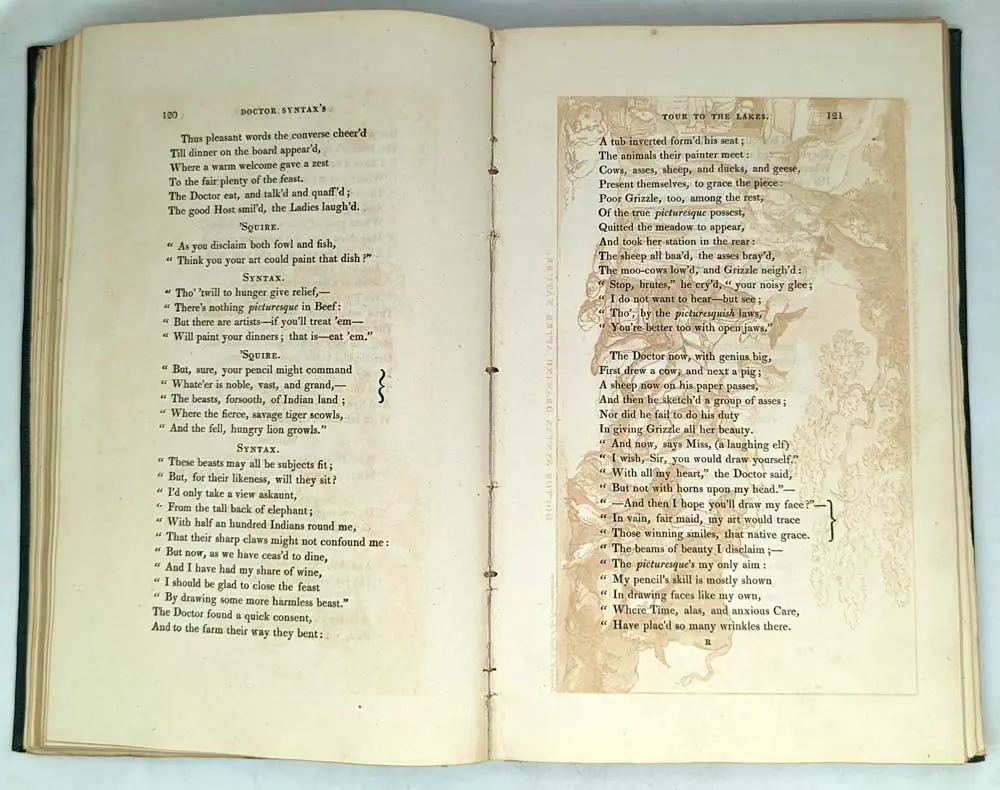 120
DOCTOR SYNTAX'S
Thus pleasant words the converse cheer'd
Till dinner on the board appear'd,
Where a warm welcome gave a zest
To the fair plenty of the feast.
The Doctor eat, and talk'd and quaff'd;
The good Host smil'd, the Ladies laugh'd.
'SQUIRE.
“ As you disclaim both fowl and fish,
“ Think you your art could paint that dish?”
SYNTAX.
“ Tho' 'twill to hunger give relief,—
“ There's nothing picturesque in Beef:
“ But there are artists—if you'll treat 'em—
“ Will paint your dinners; that is—eat 'em.”
'SQUIRE.
“ But, sure, your pencil might command
“ Whate'er is noble, vast, and grand,—
“ The beasts, forsooth, of Indian land;
“ Where the fierce, savage tiger scowls,
“ And the fell, hungry lion growls.”
SYNTAX.
“ These beasts may all be subjects fit;
“ But, for their likeness, will they sit?
“ I'd only take a view askaunt,
“ From the tall back of elephant;
“ With half an hundred Indians round me,
“ That their sharp claws might not confound me:
“ But now, as we have ceas'd to dine,
“ And I have had my share of wine,
“ I should be glad to close the feast
“ By drawing some more harmless beast.”
The Doctor found a quick consent,
And to the farm their way they bent:
TOUR TO THE LAKES.
121
A tub inverted form'd his seat;
The animals their painter meet:
Cows, asses, sheep, and ducks, and geese,
Present themselves, to grace the piece:
Poor Grizzle, too, among the rest,
Of the true picturesque possest,
Quitted the meadow to appear,
And took her station in the rear:
The sheep all baa'd, the asses bray'd,
The moo-cows low'd, and Grizzle neigh'd:
“ Stop, brutes,” he cry'd, “ your noisy glee;
“ I do not want to hear—but see;
“ Tho', by the picturesquish laws,
“ You're better too with open jaws.”
The Doctor now, with genius big,
First drew a cow, and next a pig;
A sheep now on his paper passes,
And then he sketch'd a group of asses;
Nor did he fail to do his duty
In giving Grizzle all her beauty.
“ And now, says Miss, (a laughing elf)
“ I wish, Sir, you would draw yourself.”
“ With all my heart,” the Doctor said,
“ But not with horns upon my head.”—
“ —And then I hope you'll draw my face?”—
“ In vain, fair maid, my art would trace
“ Those winning smiles, that native grace.
“ The beams of beauty I disclaim;—
“ The picturesque's my only aim:
“ My pencil's skill is mostly shown
“ In drawing faces like my own,
“ Where Time, alas, and anxious Care,
“ Have plac'd so many wrinkles there.
R